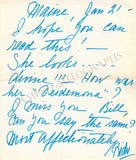 Maine Jan 21 -
I hope you can
read this! -
She looks -
divine!!! How was
her "Desdemona"?
I miss you Bill
Can you say the same?
Most affectionately